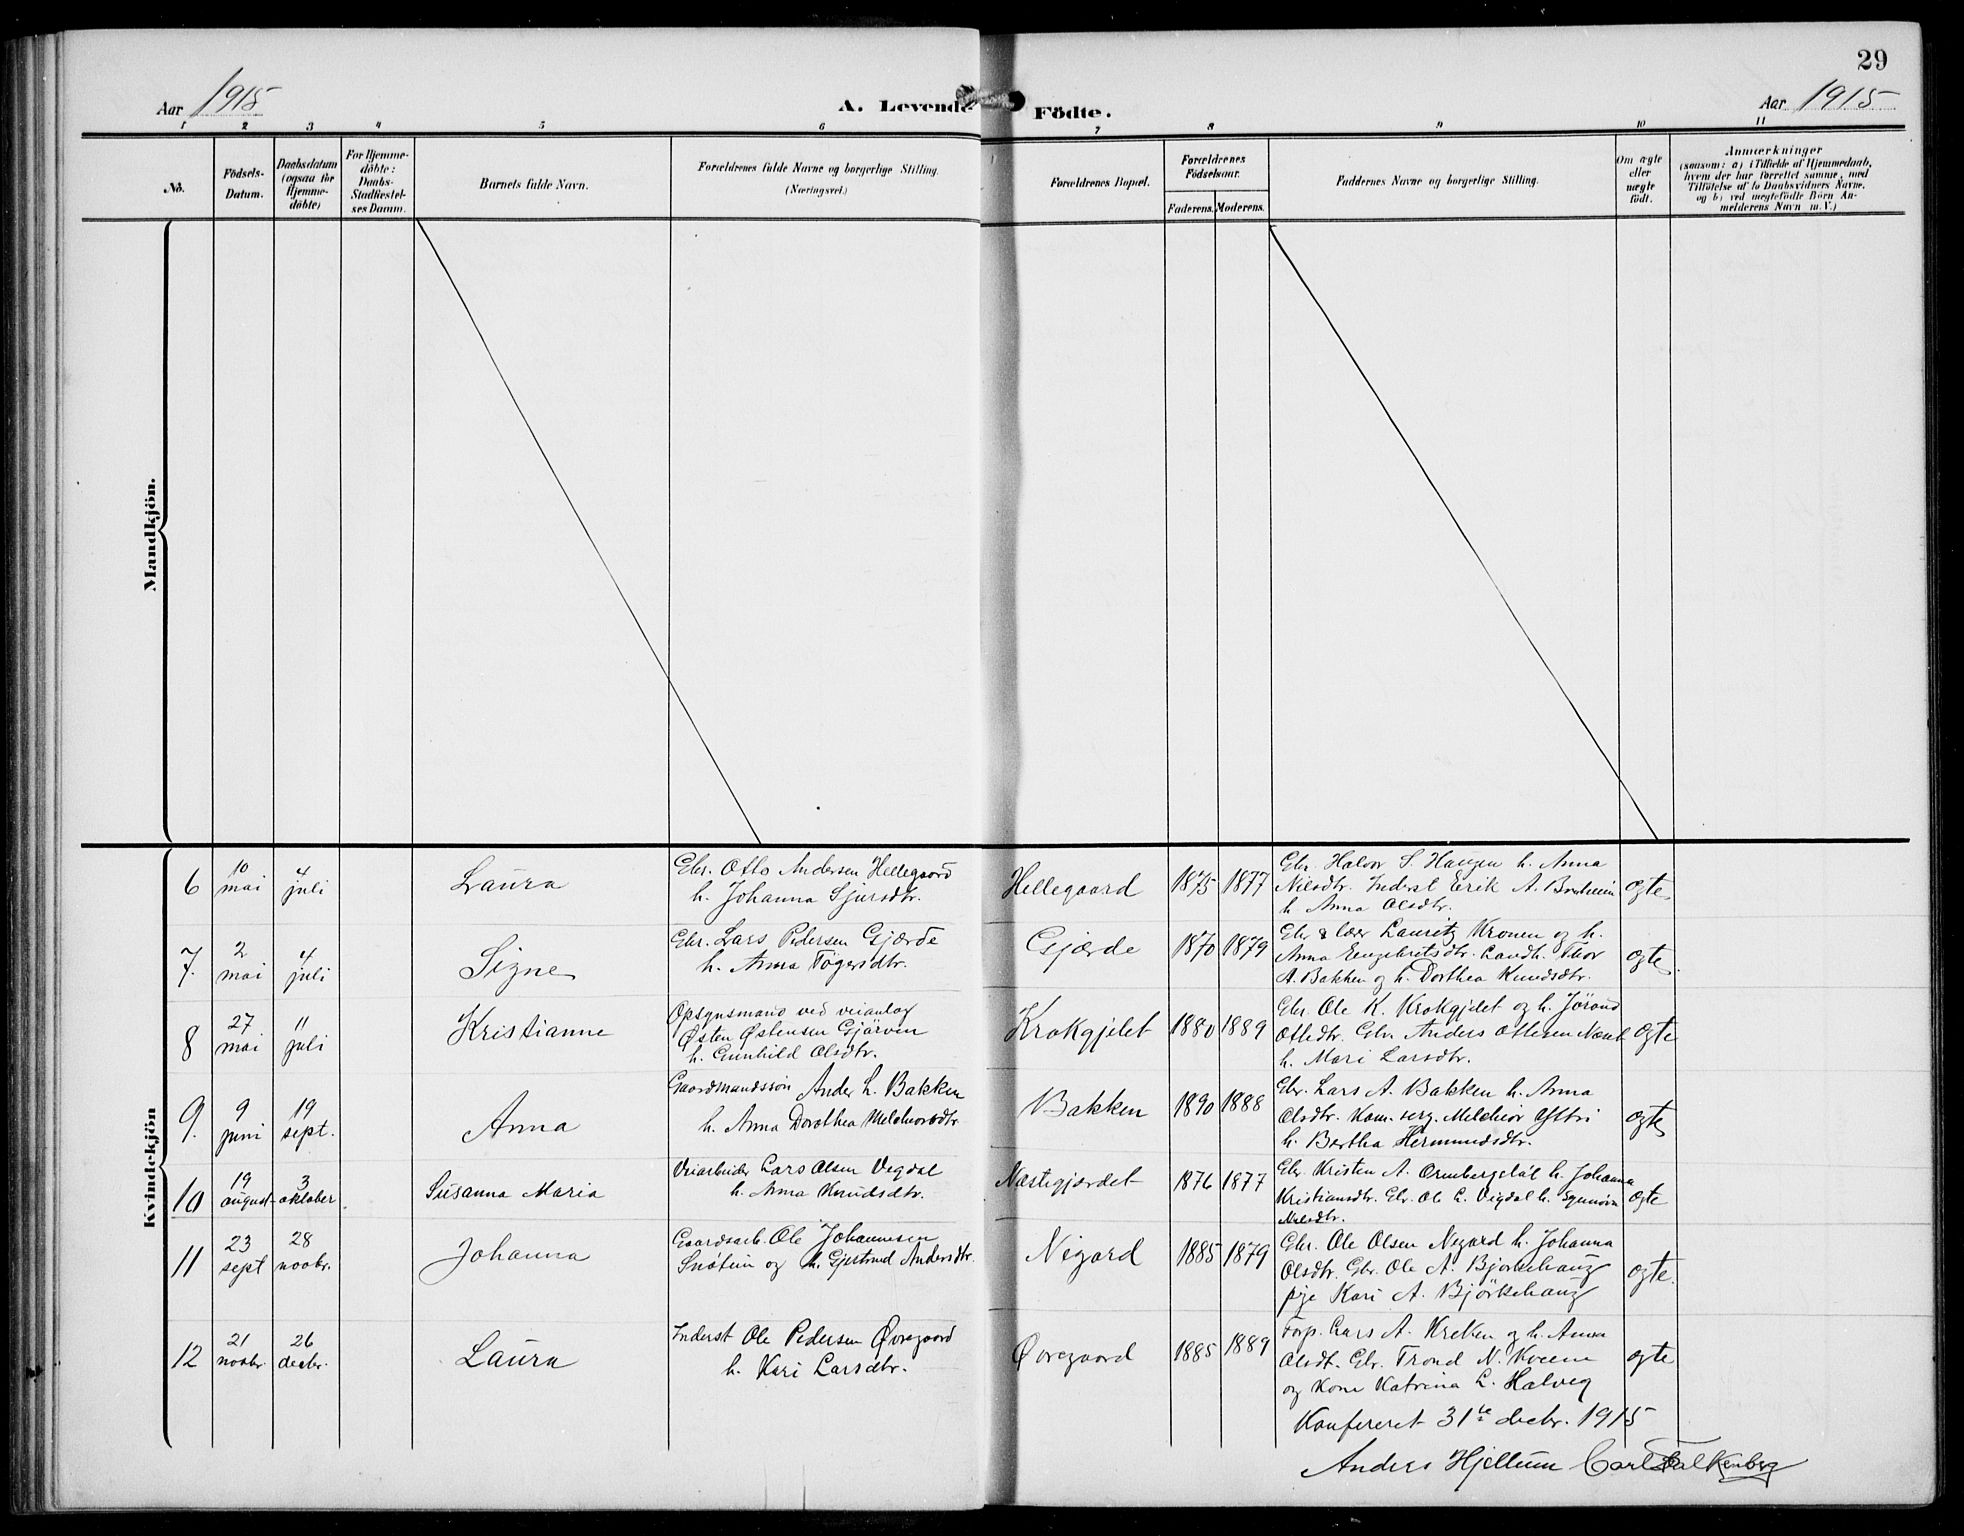 29
Aar 1915
A. Levende Födte.
Aar 1915
1 2 3 4 5 6 7 8 9 10 11
No.
Födsels-
Datum.
Daabsdatum
(ogsaa for
Hjemme-
döbte)
For Hjemme-
döbte:
Daabs-
Stadfæstel-
ses Datum.
Barnets fulde Navn.
Forældrenes fulde Navne og borgerlige Stilling.
(Næringsvei.)
Forældrenes Bopæl.
Forældrenes
Födselsaar.
Faderens. Moderens.
Faddernes Navne og borgerlige Stilling.
Om ægte
eller
uægte
födt.
Anmærkninger
(saasom: a) i Tilfælde af Hjemmedaab,
hvem der har forrettet samme, med
Tilföielse af to Daabsvidners Navne,
og b) ved uægtefödte Börn An-
melderens Navn m. V.)
Mandkjön.
Kvindekjön
6
10
mai
4
juli
Laura
Gbr. Otto Andersen Hellegaard
h. Johanna Sjursdtr.
Hellegaard
1875
1877
Gbr. Halvor S. Haugen h. Anna
Nilsdtr. Inderst Erik A. Breheim
h. Anna Olsdtr.
ægte
7.
2
mai
4
juli
Signe
Gbr. Lars Pedersen Gjærde
h. Anna Tøgersdtr.
Gjærde
1870
1879
Gbr & lær Lauritz Kronen og h.
Anna Engebretsdtr. Landh. Thor
A. Bakken og h. Dorthea Knudsdtr.
ægte
8
27
mai
11
juli
Kristianne
Opsynsmand ved veianlæg
Østen Østensen Gjørven
h. Gunhild Olsdtr.
Krokgjelet
1880
1889
Gbr Ole K. Krokgjelet og h. Jørand
Otledtr. Gbr. Anders Ottesen
h. Mari Larsdtr.
ægte
9.
9
juni
19
sept.
Anna
Gaardmandssøn Ander L. Bakken
h. Anna Dorothea Melchiorsdtr.
Bakken
1890
1888
Gbr. Lars A. Bakken h. Anna
Olsdtr. Kom. serg. Melchior Østri
h. Bertha Hermundsdtr.
ægte
10
19
august
3
oktober
Susanna Maria
Veiarbeider Lars Olsen Vigdal
h. Anna Knudsdtr.
Næstegjærdet
1876
1877
Gbr. Kristen A. Ormbergstøl h. Johanna
Kristiansdtr. Gbr. Ole L. Vigdal h. Synnøva
Nilsdtr.
ægte
11
23
sept
28
novbr.
Johanna
Gaardsarb. Ole Johannesen
Snøtun og h. Gjertrud Andersdtr.
Negard
1885
1879
Gbr. Ole Olsen Negard h. Johanna
Olsdtr. Gbr. Ole A. Bjørkehaug
pige Kari A. Bjørkehaug
ægte.
12
21
novbr.
26
decbr.
Laura
Inderst Ole Pedersen Øvregaard
h. Kari Larsdtr.
Øvregaard
1885
1889
Forp. Lars A. Kreken og h. Anna
Olsdt. Gbr. Trond N. Kveene
og Kone Katrina L. Halveg
ægte
Konfereret 31te decbr. 1915
Anders Hjellum Carl Falkenberg